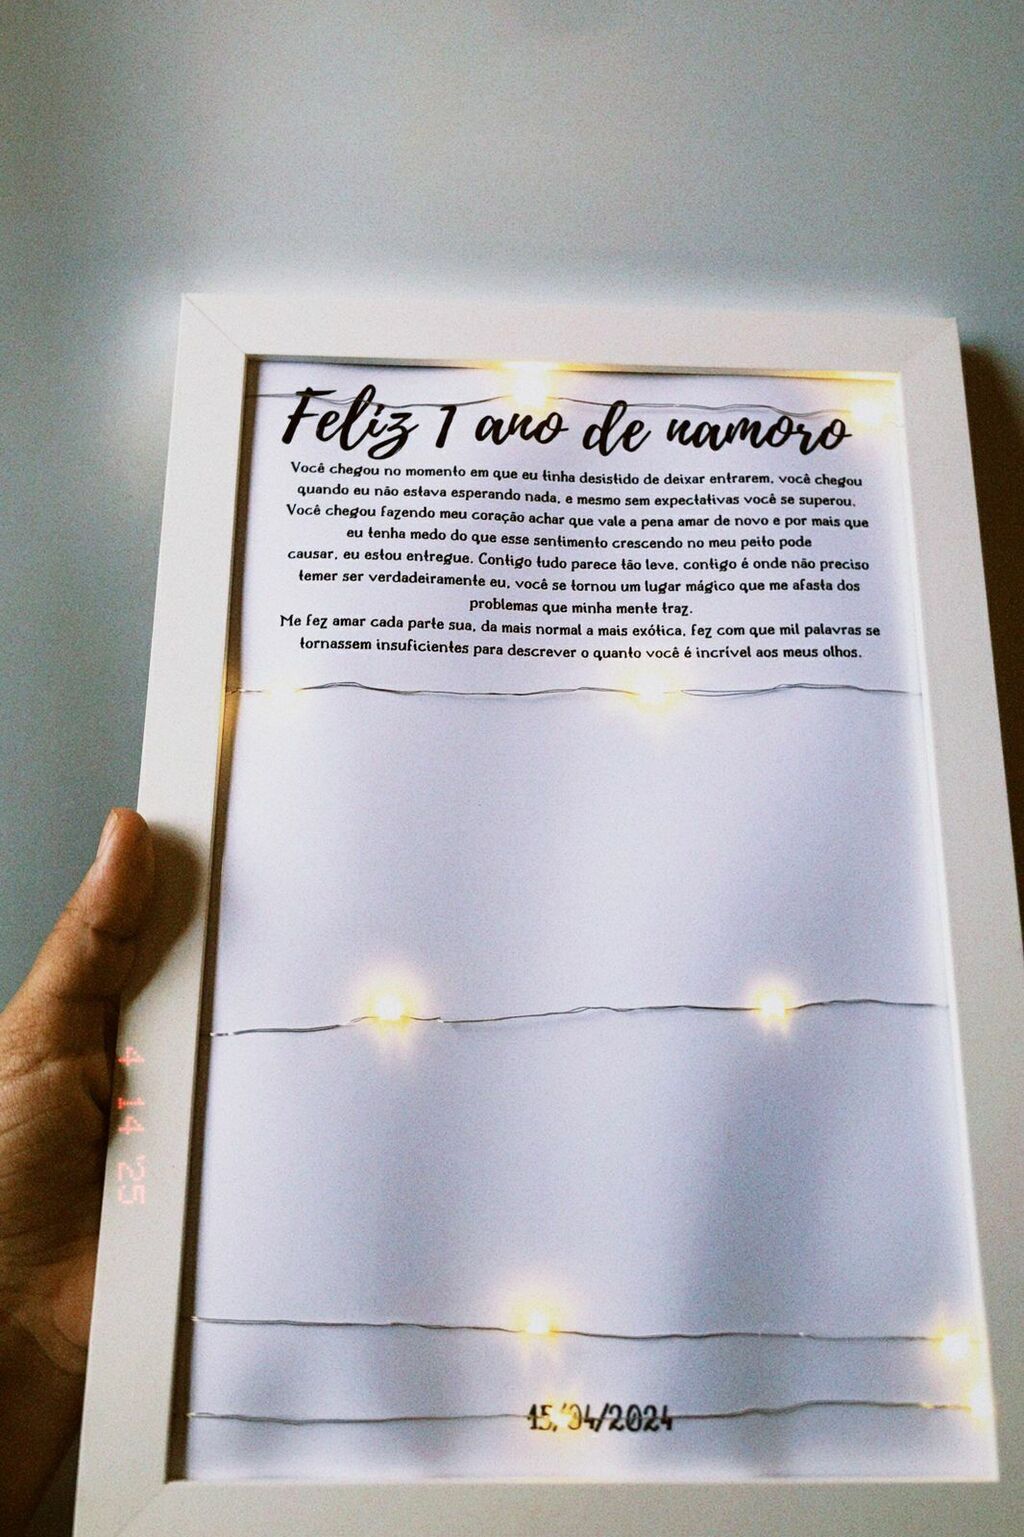 Feliz 1 ano de namoro
Você chegou no momento em que eu tinha desistido de deixar entrarem, você chegou
quando eu não estava esperando nada, e mesmo sem expectativas você se superou.
Você chegou fazendo meu coração achar que vale a pena amar de novo e por mais que
eu tenha medo do que esse sentimento crescendo no meu peito pode
causar, eu estou entregue. Contigo tudo parece tão leve, contigo é onde não preciso
temer ser verdadeiramente eu, você se tornou um lugar mágico que me afasta dos
problemas que minha mente traz.
Me fez amar cada parte sua, da mais normal a mais exótica, fez com que mil palavras se
tornassem insuficientes para descrever o quanto você é incrível aos meus olhos.
15/04/2024
4 14 '25